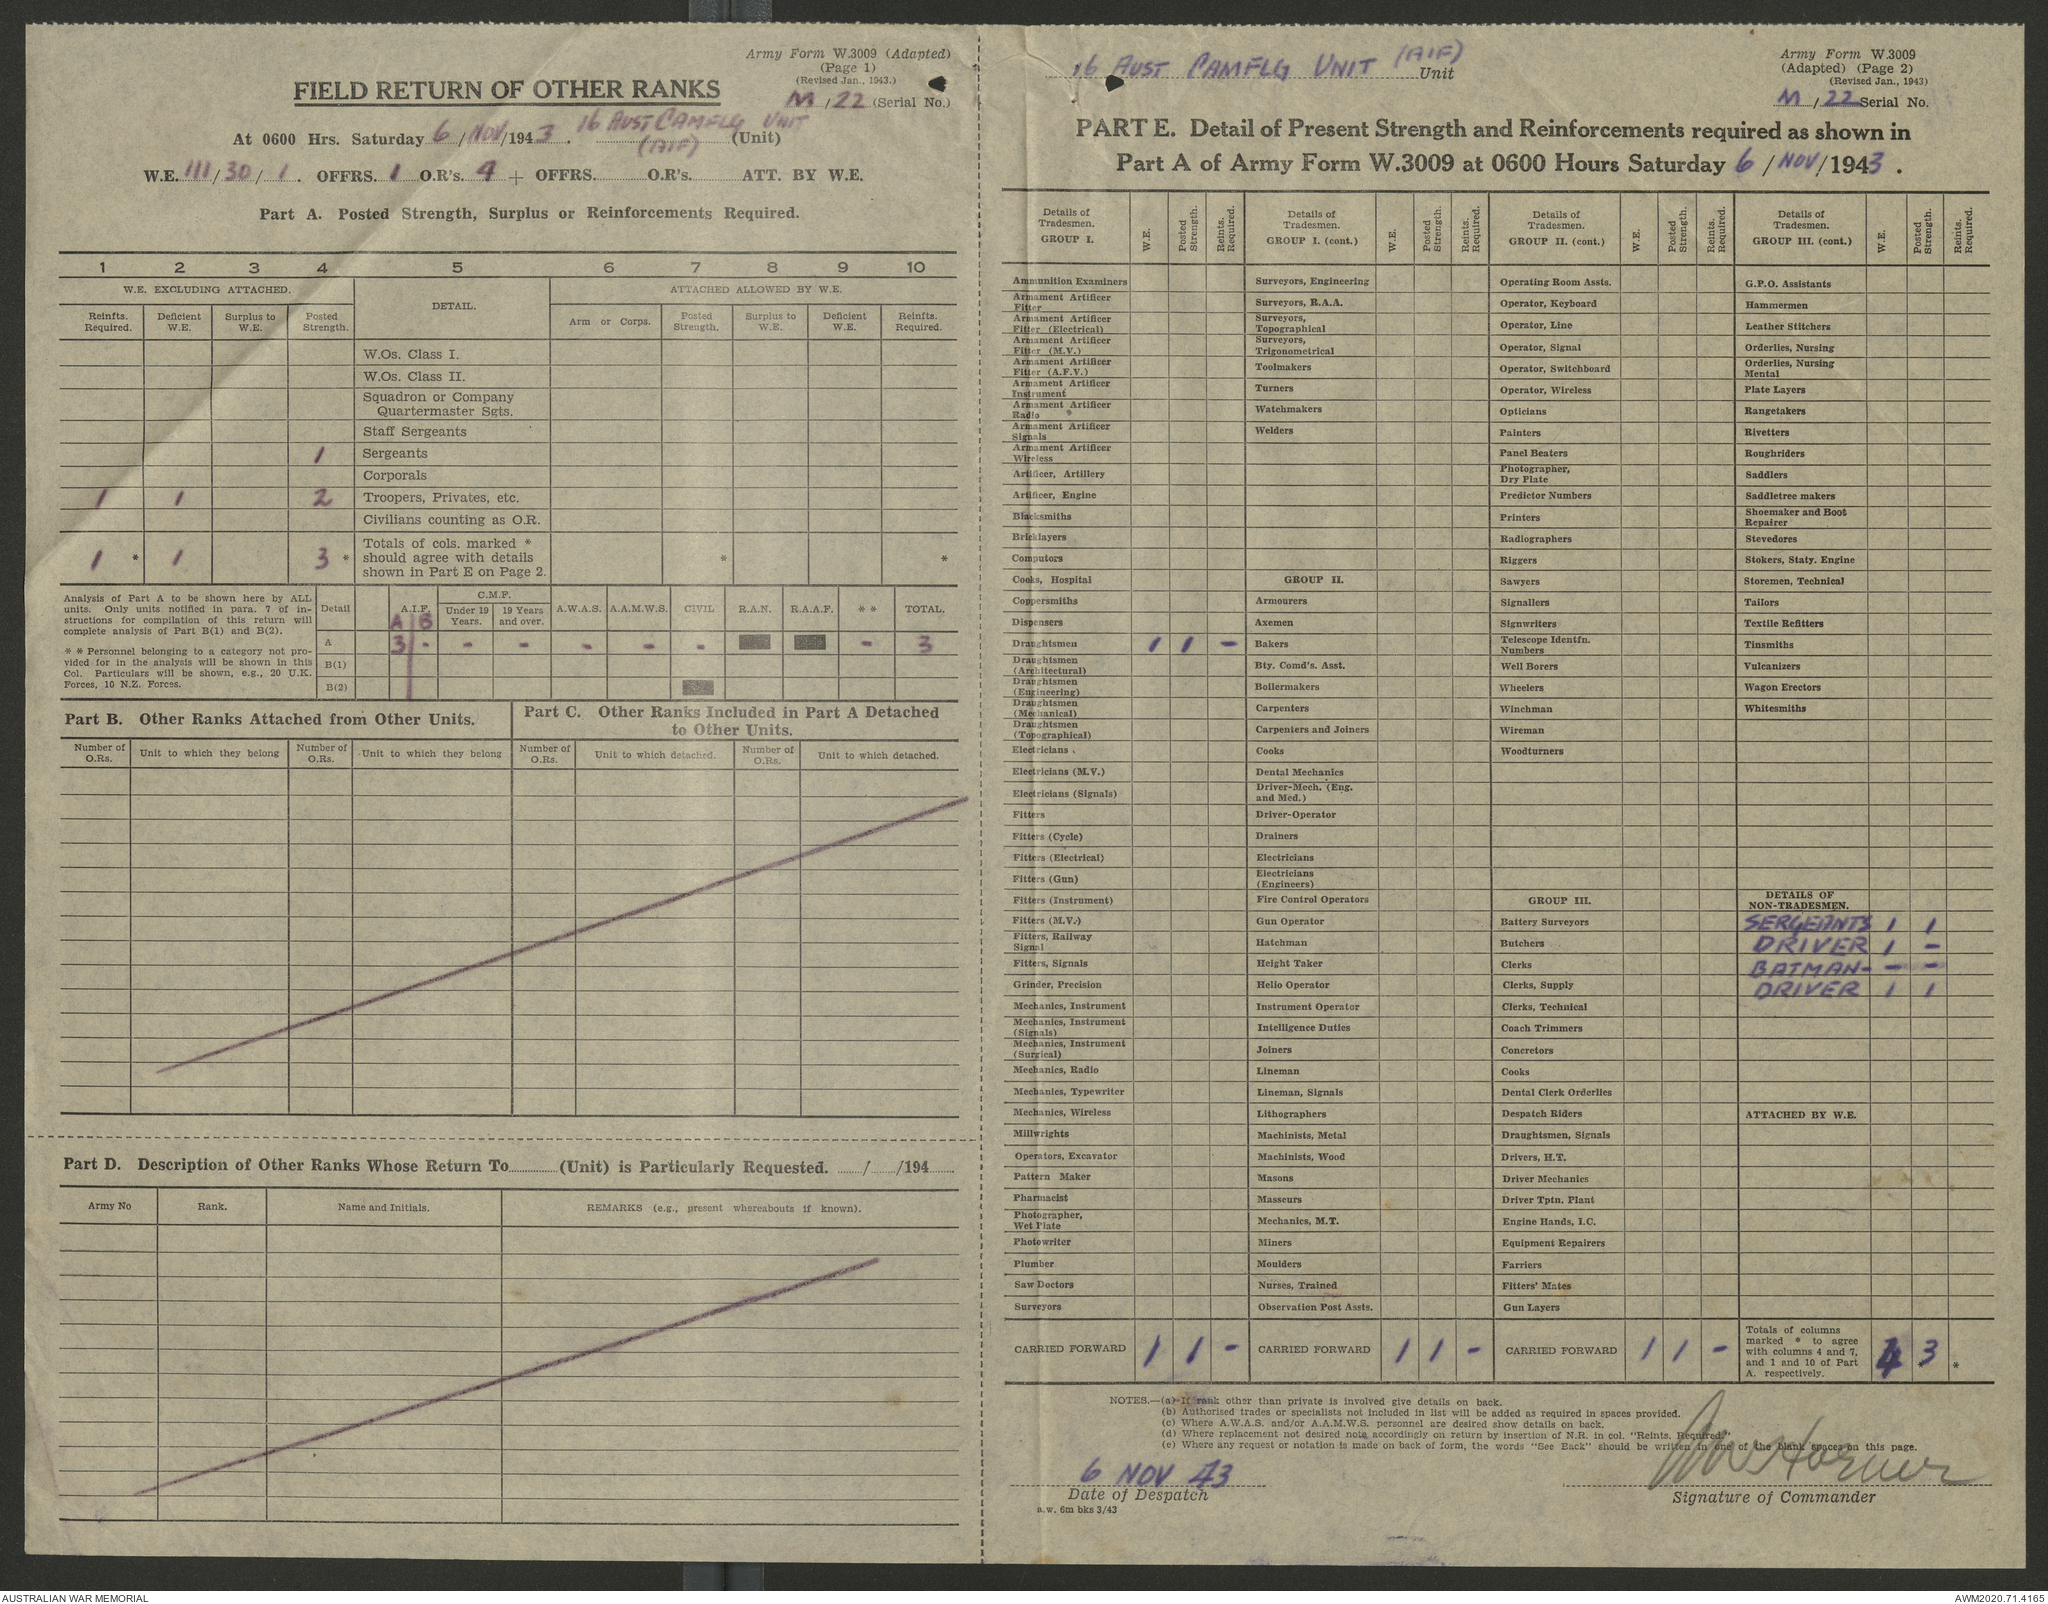 Army Form W.3009 (Adapted)
(Page 1)
(Revised Jan., 1943.)
FIELD RETURN OF OTHER RANKS
M / 22 (Serial No.)
At 0600 Hrs. Saturday 6 / NOV / 1943. 16 AUST CAMFLG UNIT (AIF) (Unit)
W.E. 111 / 30 / 1. OFFRS. 1 O.R's. 4 + OFFRS. O.R's. ATT. BY W.E.
Part A. Posted Strength, Surplus or Reinforcements Required.
1 2 3 4 5 6 7 8 9 10
W.E. EXCLUDING ATTACHED. DETAIL. ATTACHED ALLOWED BY W.E.
Reinfts. Required. Deficient W.E. Surplus to W.E. Posted Strength. Arm or Corps. Posted Strength. Surplus to W.E. Deficient W.E. Reinfts. Required.
W.Os. Class I.
W.Os. Class II.
Squadron or Company
Quartermaster Sgts.
Staff Sergeants
1 Sergeants
Corporals
1 1 2 Troopers, Privates, etc.
Civilians counting as O.R.
1 * 1 3 * Totals of cols. marked * should agree with details shown in Part E on Page 2. * *
Analysis of Part A to be shown here by ALL
units. Only units notified in para. 7 of in-
structions for compilation of this return will
complete analysis of Part B(1) and B(2).
* * Personnel belonging to a category not pro-
vided for in the analysis will be shown in this
Col. Particulars will be shown, e.g., 20 U.K.
Forces, 10 N.Z. Forces.
Detail A.I.F. C.M.F. Under 19 Years. 19 Years and over. A.W.A.S. A.A.M.W.S. CIVIL R.A.N. R.A.A.F. * * TOTAL.
A B
A 3 - - - - - - - 3
B(1)
B(2)
Part B. Other Ranks Attached from Other Units.
Part C. Other Ranks Included in Part A Detached
to Other Units.
Number of O.Rs. Unit to which they belong Number of O.Rs. Unit to which they belong Number of O.Rs. Unit to which detached. Number of O.Rs. Unit to which detached.
Part D. Description of Other Ranks Whose Return To (Unit) is Particularly Requested. / /194
Army No Rank. Name and Initials. REMARKS (e.g., present whereabouts if known).
16 AUST CAMFLG UNIT (AIF) Unit
Army Form W.3009
(Adapted) (Page 2)
(Revised Jan., 1943)
M / 22 Serial No.
PART E. Detail of Present Strength and Reinforcements required as shown in
Part A of Army Form W.3009 at 0600 Hours Saturday 6 / NOV / 1943.
Details of Tradesmen. GROUP I. W.E. Posted Strength. Reints. Required.
Ammunition Examiners
Armament Artificer Fitter
Armament Artificer Fitter (Electrical)
Armament Artificer Fitter (M.V.)
Armament Artificer Fitter (A.F.V.)
Armament Artificer Instrument
Armament Artificer Radio
Armament Artificer Signals
Armament Artificer Wireless
Artificer, Artillery
Artificer, Engine
Blacksmiths
Bricklayers
Computors
Cooks, Hospital
Coppersmiths
Dispensers
Draughtsmen 1 1 -
Draughtsmen (Architectural)
Draughtsmen (Engineering)
Draughtsmen (Mechanical)
Draughtsmen (Topographical)
Electricians
Electricians (M.V.)
Electricians (Signals)
Fitters
Fitters (Cycle)
Fitters (Electrical)
Fitters (Gun)
Fitters (Instrument)
Fitters (M.V.)
Fitters, Railway Signal
Fitters, Signals
Grinder, Precision
Mechanics, Instrument
Mechanics, Instrument (Signals)
Mechanics, Instrument (Surgical)
Mechanics, Radio
Mechanics, Typewriter
Mechanics, Wireless
Millwrights
Operators, Excavator
Pattern Maker
Pharmacist
Photographer, Wet Plate
Photowriter
Plumber
Saw Doctors
Surveyors
CARRIED FORWARD 1 1 -
Details of Tradesmen. GROUP I. (cont.) W.E. Posted Strength. Reints. Required.
Surveyors, Engineering
Surveyors, R.A.A.
Surveyors, Topographical
Surveyors, Trigonometrical
Toolmakers
Turners
Watchmakers
Welders
GROUP II.
Armourers
Axemen
Bakers
Bty. Comd's. Asst.
Boilermakers
Carpenters
Carpenters and Joiners
Cooks
Dental Mechanics
Driver-Mech. (Eng. and Med.)
Driver-Operator
Drainers
Electricians
Electricians (Engineers)
Fire Control Operators
Gun Operator
Hatchman
Height Taker
Helio Operator
Instrument Operator
Intelligence Duties
Joiners
Lineman
Lineman, Signals
Lithographers
Machinists, Metal
Machinists, Wood
Masons
Masseurs
Mechanics, M.T.
Miners
Moulders
Nurses, Trained
Observation Post Assts.
CARRIED FORWARD 1 1 -
Details of Tradesmen. GROUP II. (cont.) W.E. Posted Strength. Reints. Required.
Operating Room Assts.
Operator, Keyboard
Operator, Line
Operator, Signal
Operator, Switchboard
Operator, Wireless
Opticians
Painters
Panel Beaters
Photographer, Dry Plate
Predictor Numbers
Printers
Radiographers
Riggers
Sawyers
Signallers
Signwriters
Telescope Identfn. Numbers
Well Borers
Wheelers
Winchman
Wireman
Woodturners
GROUP III.
Battery Surveyors
Butchers
Clerks
Clerks, Supply
Clerks, Technical
Coach Trimmers
Concretors
Cooks
Dental Clerk Orderlies
Despatch Riders
Draughtsmen, Signals
Drivers, H.T.
Driver Mechanics
Driver Tptn. Plant
Engine Hands, I.C.
Equipment Repairers
Farriers
Fitters' Mates
Gun Layers
CARRIED FORWARD 1 1 -
Details of Tradesmen. GROUP III. (cont.) W.E. Posted Strength. Reints. Required.
G.P.O. Assistants
Hammermen
Leather Stitchers
Orderlies, Nursing
Orderlies, Nursing Mental
Plate Layers
Rangetakers
Rivetters
Roughriders
Saddlers
Saddletree makers
Shoemaker and Boot Repairer
Stevedores
Stokers, Staty. Engine
Storemen, Technical
Tailors
Textile Refitters
Tinsmiths
Vulcanizers
Wagon Erectors
Whitesmiths
DETAILS OF NON-TRADESMEN.
SERGEANTS 1 1
DRIVER 1 -
BATMAN- - -
DRIVER 1 1
ATTACHED BY W.E.
Totals of columns marked * to agree with columns 4 and 7, and 1 and 10 of Part A. respectively. 4 3 * *
NOTES.—(a) If rank other than private is involved give details on back.
(b) Authorised trades or specialists not included in list will be added as required in spaces provided.
(c) Where A.W.A.S. and/or A.A.M.W.S. personnel are desired show details on back.
(d) Where replacement not desired note accordingly on return by insertion of N.R. in col. "Reints. Required."
(e) Where any request or notation is made on back of form, the words "See Back" should be written in one of the blank spaces on this page.
6 NOV 43
Date of Despatch
Signature of Commander
a.w. 6m bks 3/43
AUSTRALIAN WAR MEMORIAL
AWM2020.71.4165